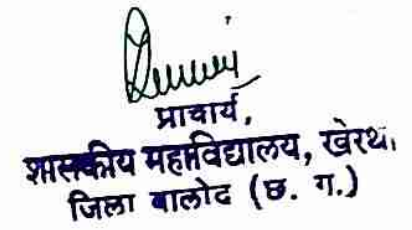 प्राचार्य,
शासकीय महाविद्यालय, खेरथा
जिला बालोद (छ. ग.)